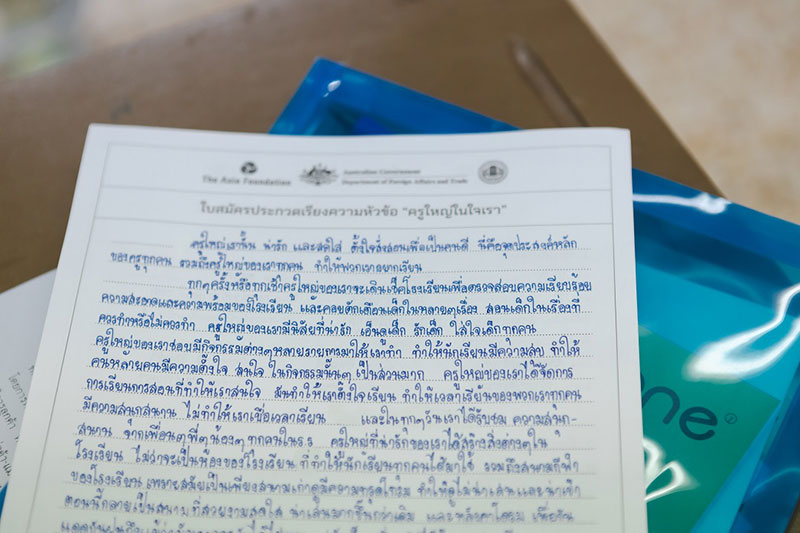 The Asia Foundation
Australian Government
Department of Foreign Affairs and Trade
ใบสมัครประกวดเรียงความหัวข้อ "ครูใหญ่ในใจเรา"
ครูใหญ่เรานั้น น่ารัก และสดใส ตั้งใจสั่งสอนเพื่อเป็นคนดี นี่คือจุดประสงค์หลัก
ของครูทุกคน รวมถึงครูใหญ่ของเราทุกคน ทำให้พวกเราอยากเรียน
ทุกๆครั้งหรือทุกเช้าครูใหญ่ของเราจะเดินเช็คโรงเรียนเพื่อตรวจสอบความเรียบร้อย
ความสะอาดและความพร้อมของโรงเรียน และคอยตักเตือนเด็กในหลายๆเรื่อง สอนเด็กในเรื่องที่
ควรทำหรือไม่ควรทำ ครูใหญ่ของเรามีนิสัยที่น่ารัก เอ็นดูเด็ก รักเด็ก ใส่ใจเด็กทุกคน
ครูใหญ่ของเราชอบมีกิจกรรมต่างๆหลายรายการมาให้เราทำ ทำให้นักเรียนมีความสุข ทำให้
คนหลายคนมีความตั้งใจ สนใจ ในกิจกรรมนั้นๆ เป็นส่วนมาก ครูใหญ่ของเราได้จัดการ
การเรียนการสอนที่ทำให้เราสนใจ มันทำให้เราตั้งใจเรียน ทำให้เวลาเรียนของพวกเราทุกคน
มีความสนุกสนาน ไม่ทำให้เราเบื่อเวลาเรียน และในทุกๆวันเราได้รับชม ความสนุก-
สนาน จากเพื่อนๆพี่ๆน้องๆทุกคนในร.ร ครูใหญ่ที่น่ารักของเราได้สร้างสิ่งต่างๆใน
โรงเรียน ไม่ว่าจะเป็นห้องของโรงเรียน ที่ทำให้นักเรียนทุกคนได้มาใช้ รวมถึงสนามกีฬา
ของโรงเรียน เพราะสมัยเป็นเพียงสนามเก่าดูมีความทรุดโทรม ทำให้ดูไม่น่าเล่นและน่าเข้า
ตอนนี้กลายเป็นสนามที่สวยงามสดใส น่าเล่นมากขึ้นกว่าเดิม และหลังคาโดม
one